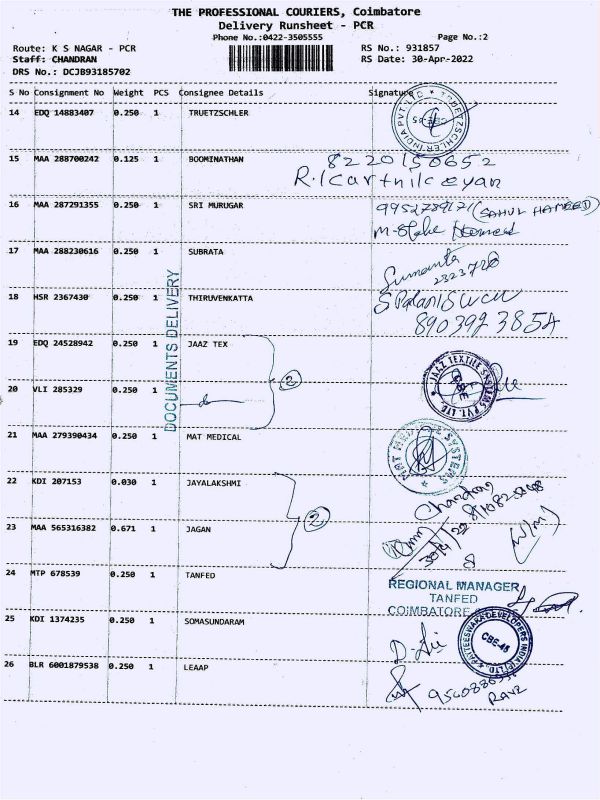 THE PROFESSIONAL COURIERS, Coimbatore
Delivery Runsheet - PCR
Phone No.:0422-3505555
Page No.:2
Route: K S NAGAR - PCR
RS No.: 931857
Staff: CHANDRAN
RS Date: 30-Apr-2022
DRS No.: DCJB93185702
S No Consignment No Weight PCS Consignee Details Signature
14 EDQ 14883407 0.250 1 TRUETZSCHLER
TRUETZSCHLER INDIA PVT. LTD
15 MAA 288700242 0.125 1 BOOMINATHAN 8220150652
R.Kartnikeyan
16 MAA 287291355 0.250 1 SRI MURUGAR (SAHUL HAMEED)
17 MAA 288230616 0.250 1 SUBRATA
Sumanta
18 HSR 2367430 0.250 1 THIRUVENKATTA
8903923854
DOCUMENTS DELIVERY
19 EDQ 24528942 0.250 1 JAAZ TEX
2
JAAZ TEXTILE SYSTEMS PVT. LTD.
CBE
20 VLI 285329 0.250 1 do
21 MAA 279390434 0.250 1 MAT MEDICAL
MAT MEDICAL SYSTEMS
22 KDI 207153 0.030 1 JAYALAKSHMI
Chandran
2
23 MAA 565316382 0.671 1 JAGAN
30/4/22
24 MTP 678539 0.250 1 TANFED
REGIONAL MANAGER
TANFED
COIMBATORE
25 KDI 1374235 0.250 1 SOMASUNDARAM
PATTEESWARA DEVELOPERS INDIA (P) LTD
CBE-45
26 BLR 6001879538 0.250 1 LEAAP
RAVI